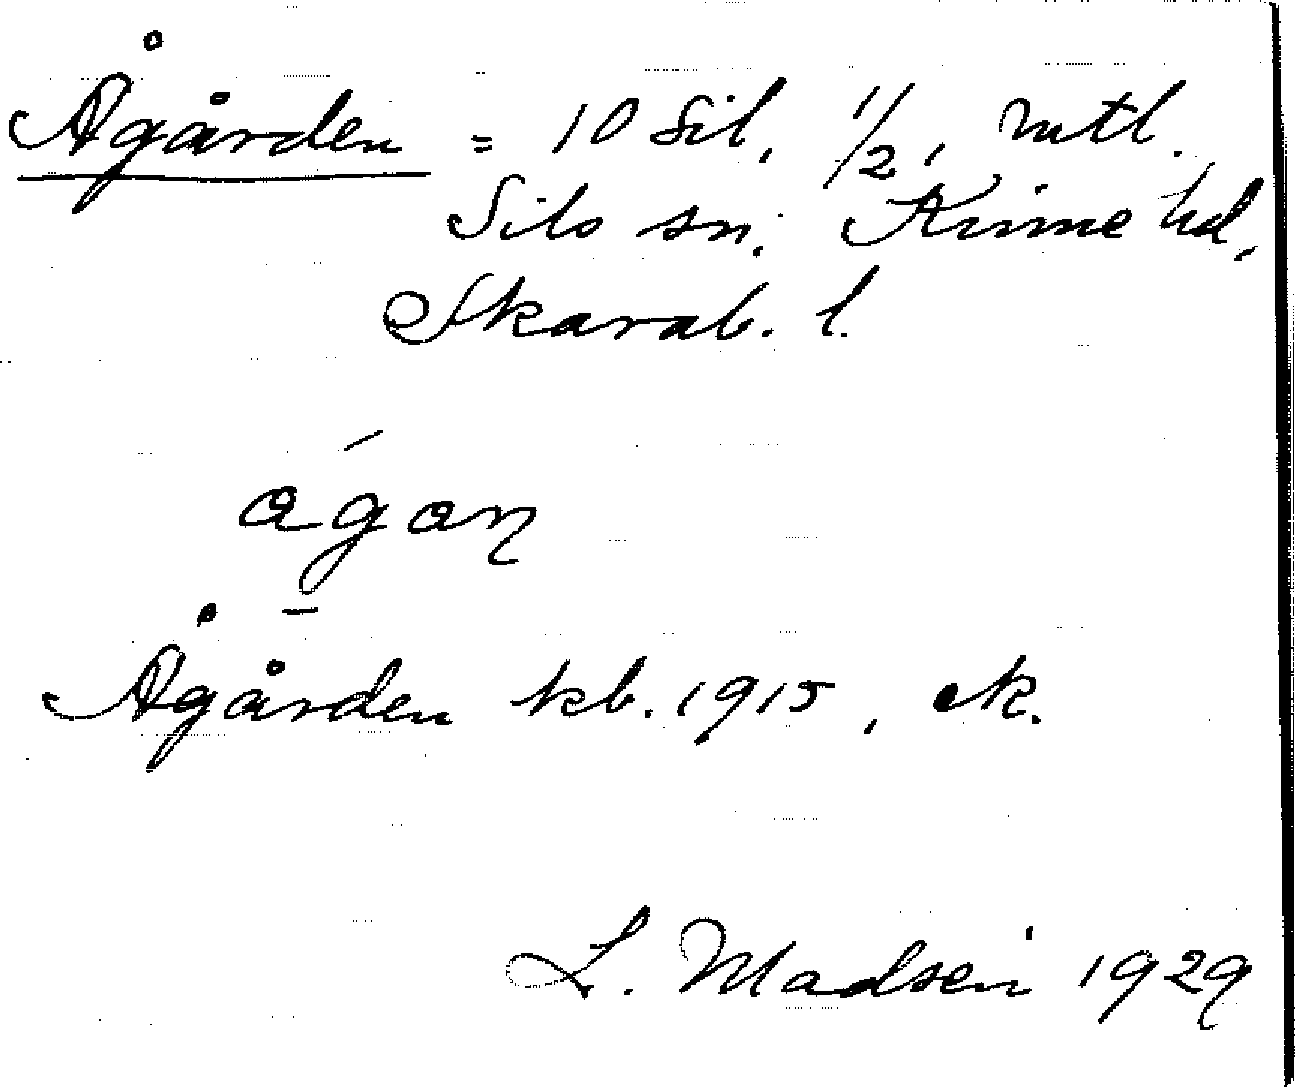 Ågården = 10 Sil, 1/2, mtl.
Sils sn. Kinne hd.
Skarab. l.
ágan
Ågården kb. 1915, ek.
L. Madsén 1929